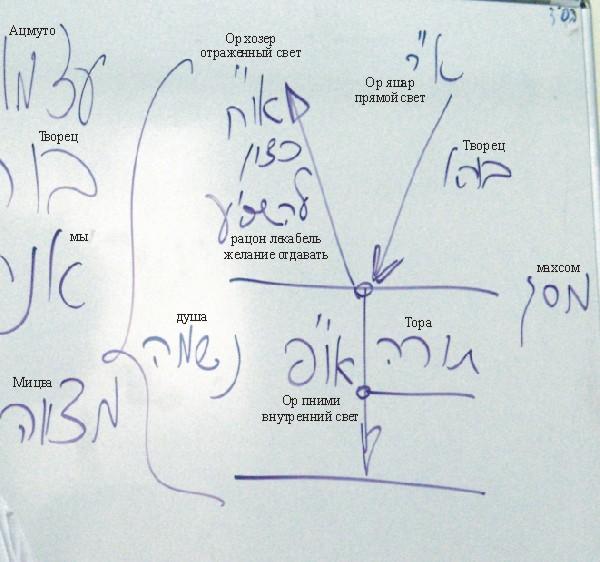 Ацмуто
עצמו
Творец
בור
мы
Мицва
מצווה
Ор хозер
отраженный свет
או"ח
רצון
להשפיע
рацон лекабель
желание отдавать
א"י
Ор яшар
прямой свет
Творец
בורא
махсом
מסך
душа
נשמה
Тора
תורה
או"פ
Ор пними
внутренний свет